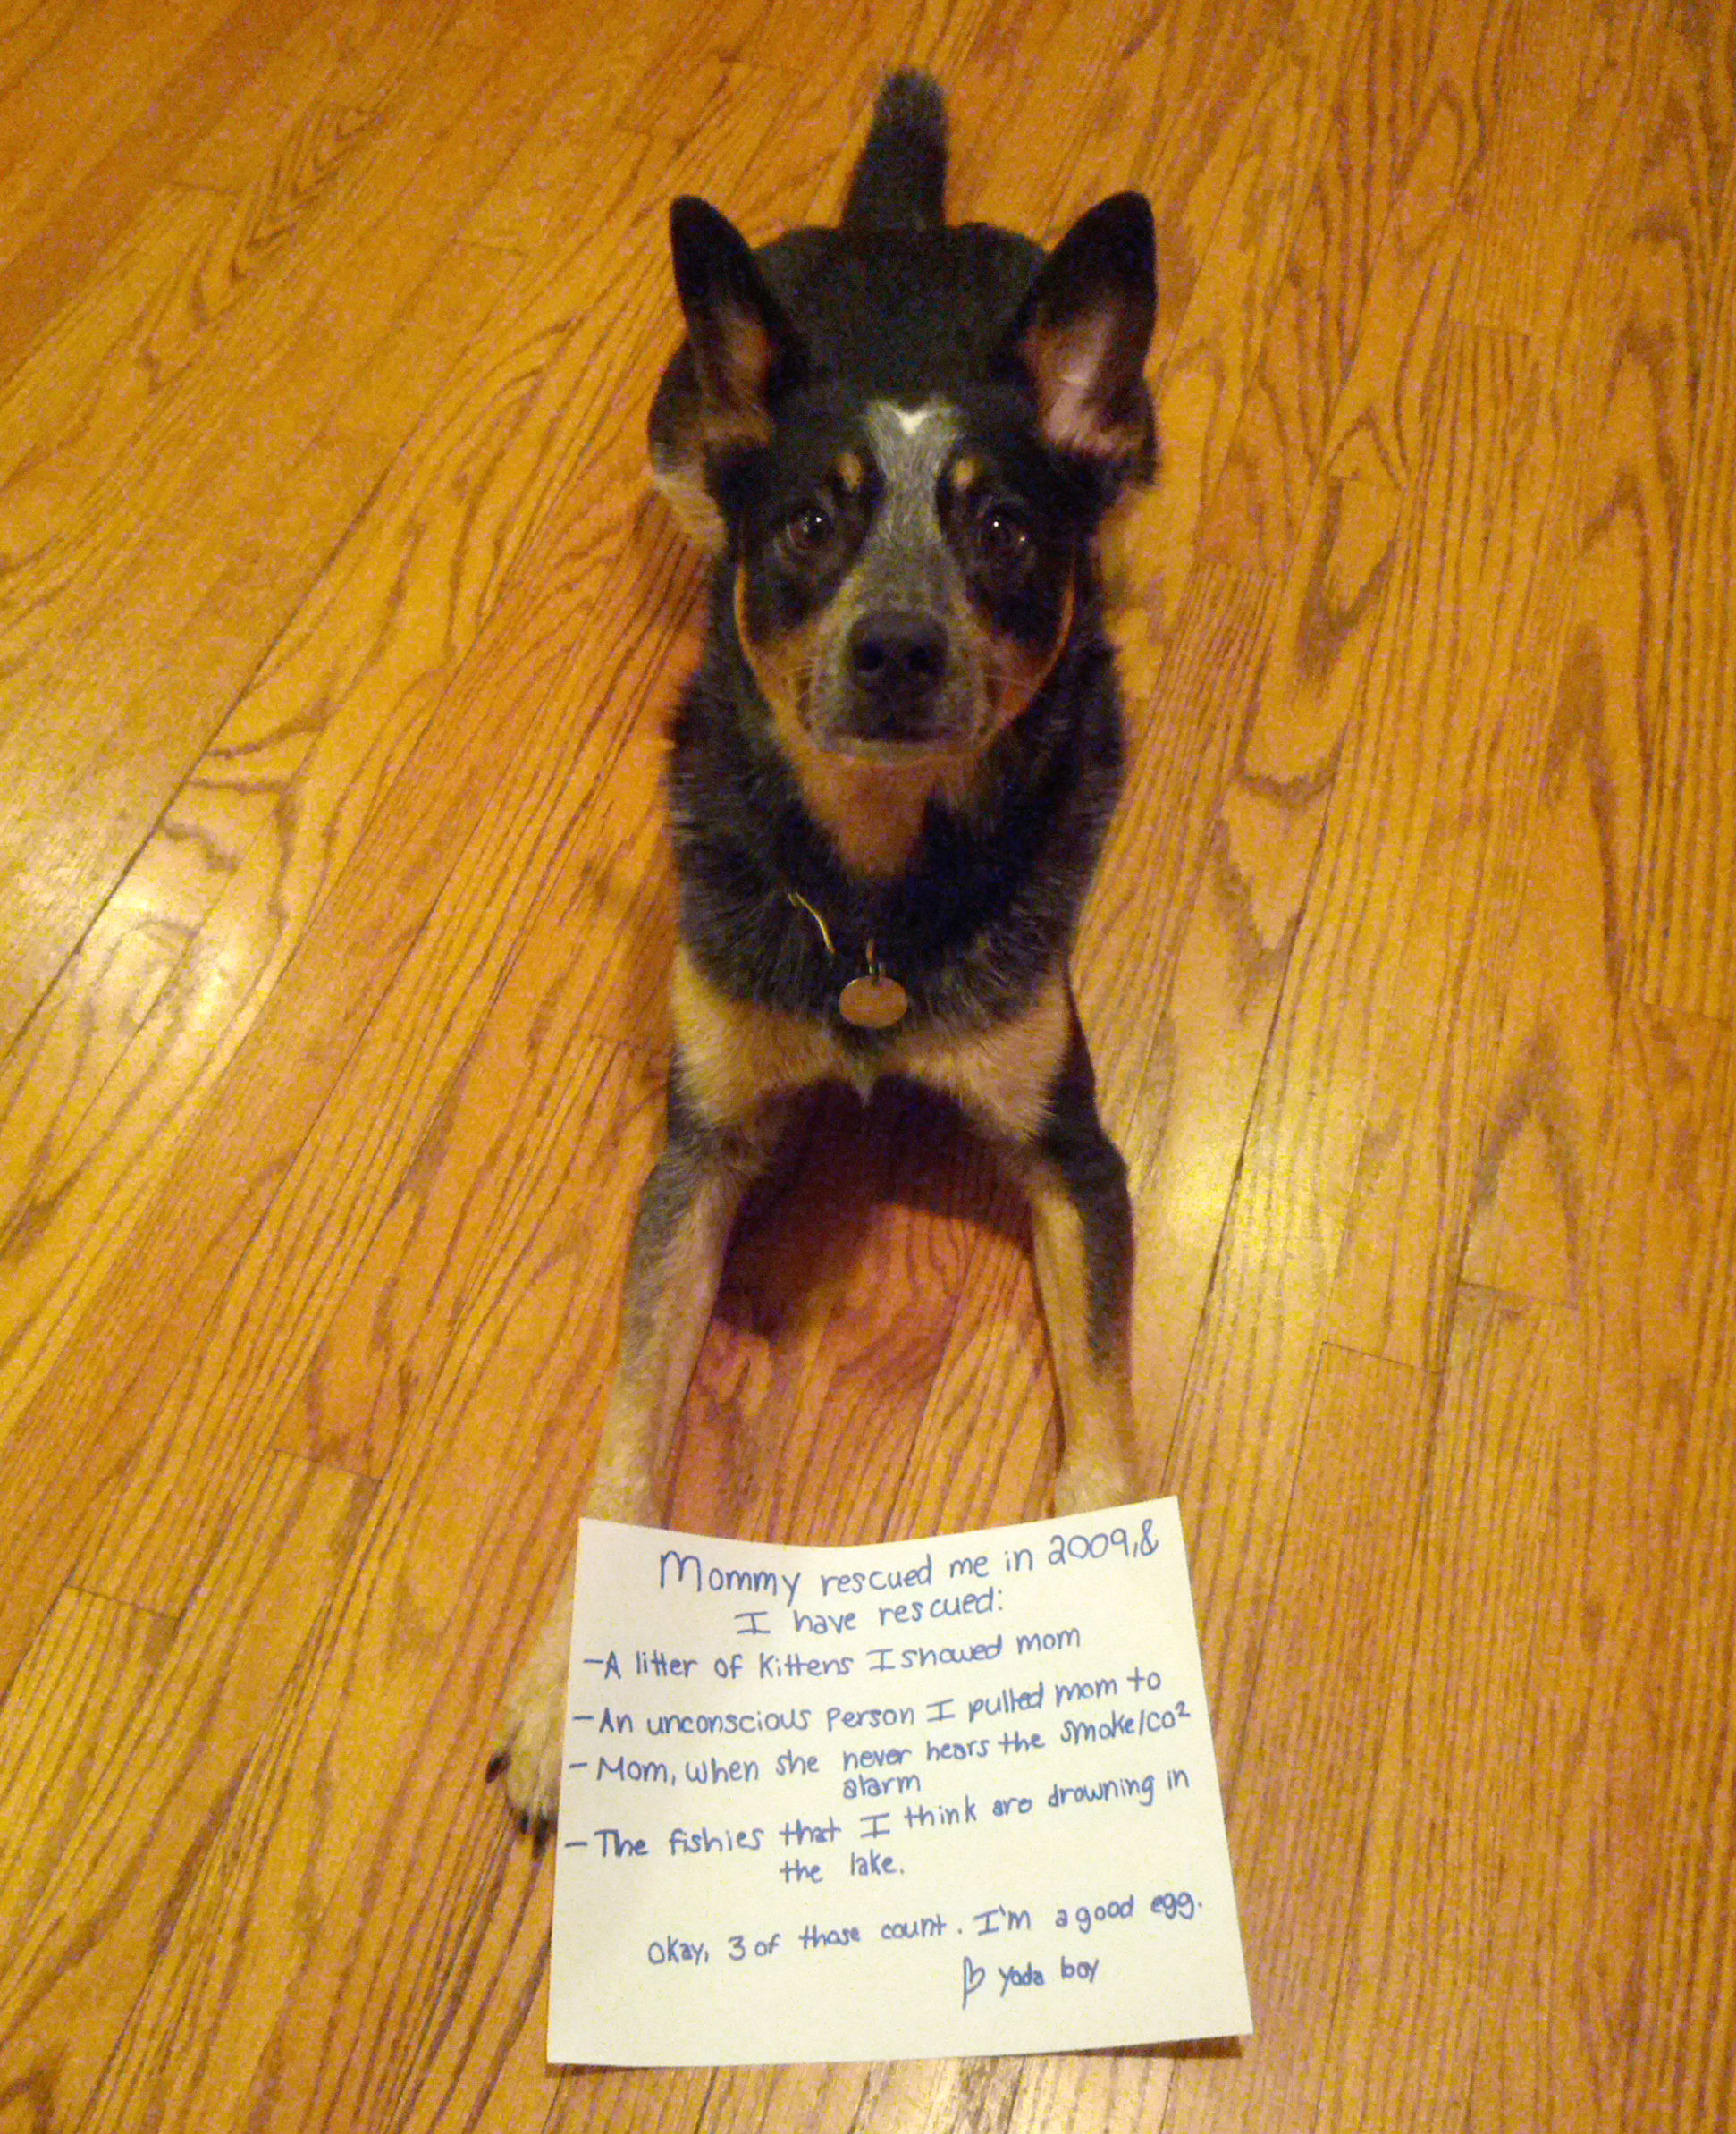 Mommy rescued me in 2009, &
I have rescued:
-A litter of kittens I showed mom
-An unconscious person I pulled mom to
-Mom, when she never hears the smoke/co²
alarm
-The fishies that I think are drowning in
the lake.
Okay, 3 of those count. I'm a good egg.
♡ Yoda boy